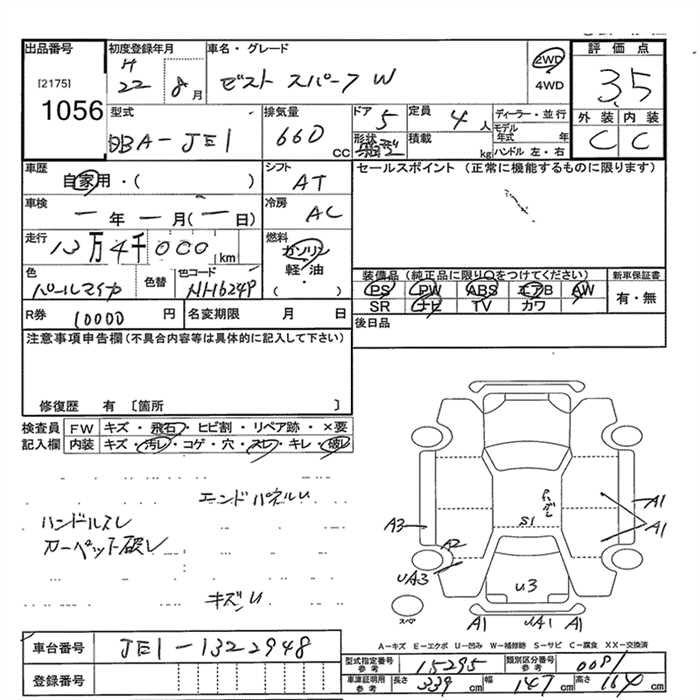 出品番号 初度登録年月 車名・グレード 評価点
[2175] H 22 8月 ゼスト スパーク W 2WD 3.5
1056 4WD
型式 排気量 ドア 定員 ディーラー・並行 外装 内装
DBA-JE1 660 CC 5 4人 モデル年式 年 C C
形状 積載 kg ハンドル 左・右
車歴 シフト セールスポイント (正常に機能するものに限ります)
自家用・( ) AT
車検 冷房
一年 一月(一日) AC
走行 燃料
13万4千000km ガソリン
軽・油
色 色替 色コード ・
パールマイカ NH624P ( )
装備品(純正品に限り○をつけてください) 新車保証書
PS PW ABS エアB AW 有・無
SR ナビ TV カワ
R券 10000円 名変期限 月 日 後日品
注意事項申告欄(不具合内容等は具体的に記入して下さい)
修復歴 有 〔箇所 〕
検査員 FW キズ・飛石・ヒビ割・リペア跡・×要
記入欄 内装 キズ・汚レ・コゲ・穴・スレ・キレ・破レ
エンドパネルU
ハンドルスレ
カーペット破レ
キズU
A1
A3 S1 A1
A2
UA3 U3
スペア A1 UA1 A1
A-キズ E-エクボ U-凹み W-補修跡 S-サビ C-腐食 XX-交換済
車台番号 JE1-1322948
登録番号
型式指定番号 参考 15295 類別区分番号 参考 0081
車庫証明用 参考 長さ 339cm 幅 147cm 高さ 164cm